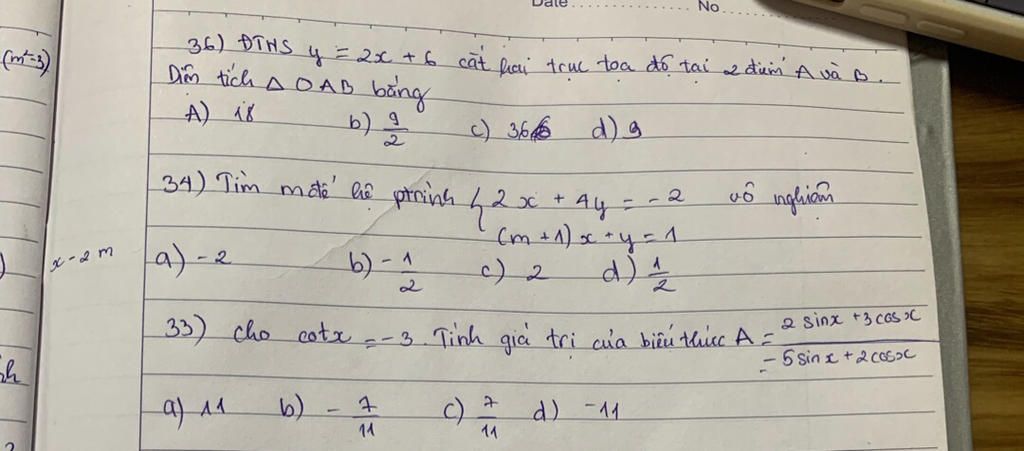 Date ............ No ......
(m²=3)
36) ĐTHS y = 2x + 6 cắt hai trục tọa độ tại 2 điểm A và B.
Diện tích △ OAB bằng
A) 18 b) 9/2 c) 36 d) 9
34) Tìm m để hệ ptrình { 2x + 4y = -2 vô nghiệm
(m + 1)x + y = 1
x - 2m
a) -2 b) -1/2 c) 2 d) 1/2
33) Cho cotx = -3. Tính giá trị của biểu thức A = (2 sinx + 3 cosx)/(-5 sinx + 2 cosx)
a) 11 b) -7/11 c) 7/11 d) -11